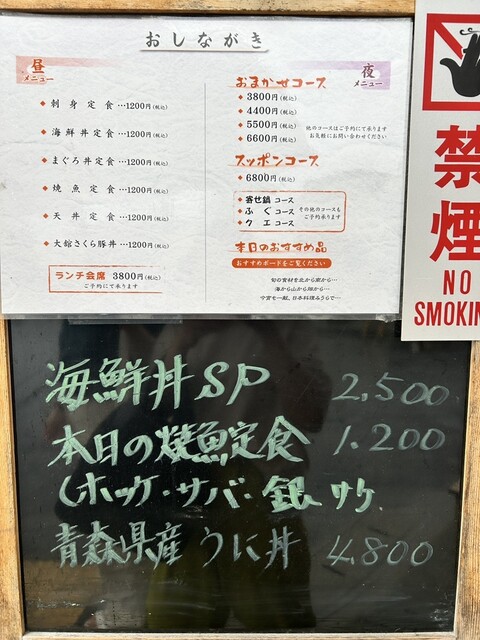 おしながき
昼
メニュー
◆ 刺身定食…1200円(税込)
◆ 海鮮丼定食…1200円(税込)
◆ まぐろ丼定食…1200円(税込)
◆ 焼魚定食…1200円(税込)
◆ 天丼定食…1200円(税込)
◆ 大館さくら豚丼…1200円(税込)
ランチ会席 3800円(税込)
ご予約にて承ります
夜
メニュー
おまかせコース
◆ 3800円(税込)
◆ 4400円(税込)
◆ 5500円(税込)
◆ 6600円(税込)
他のコースはご予約にて承ります
お気軽にお問い合わせください
スッポンコース
◆ 6800円(税込)
◆ 寄せ鍋 コース
◆ ふぐ コース
◆ クエ コース
その他のコースも
ご予約承ります
本日のおすすめ品
おすすめボードをご覧ください
旬の食材を北から南から…
海から山から畑から…
今宵も一献、日本料理るうらで…
禁煙
NO
SMOKIN
海鮮丼SP 2,500
本日の焼魚定食 1.200
(ホッケ・サバ・銀サケ
青森県産 うに丼 4,800